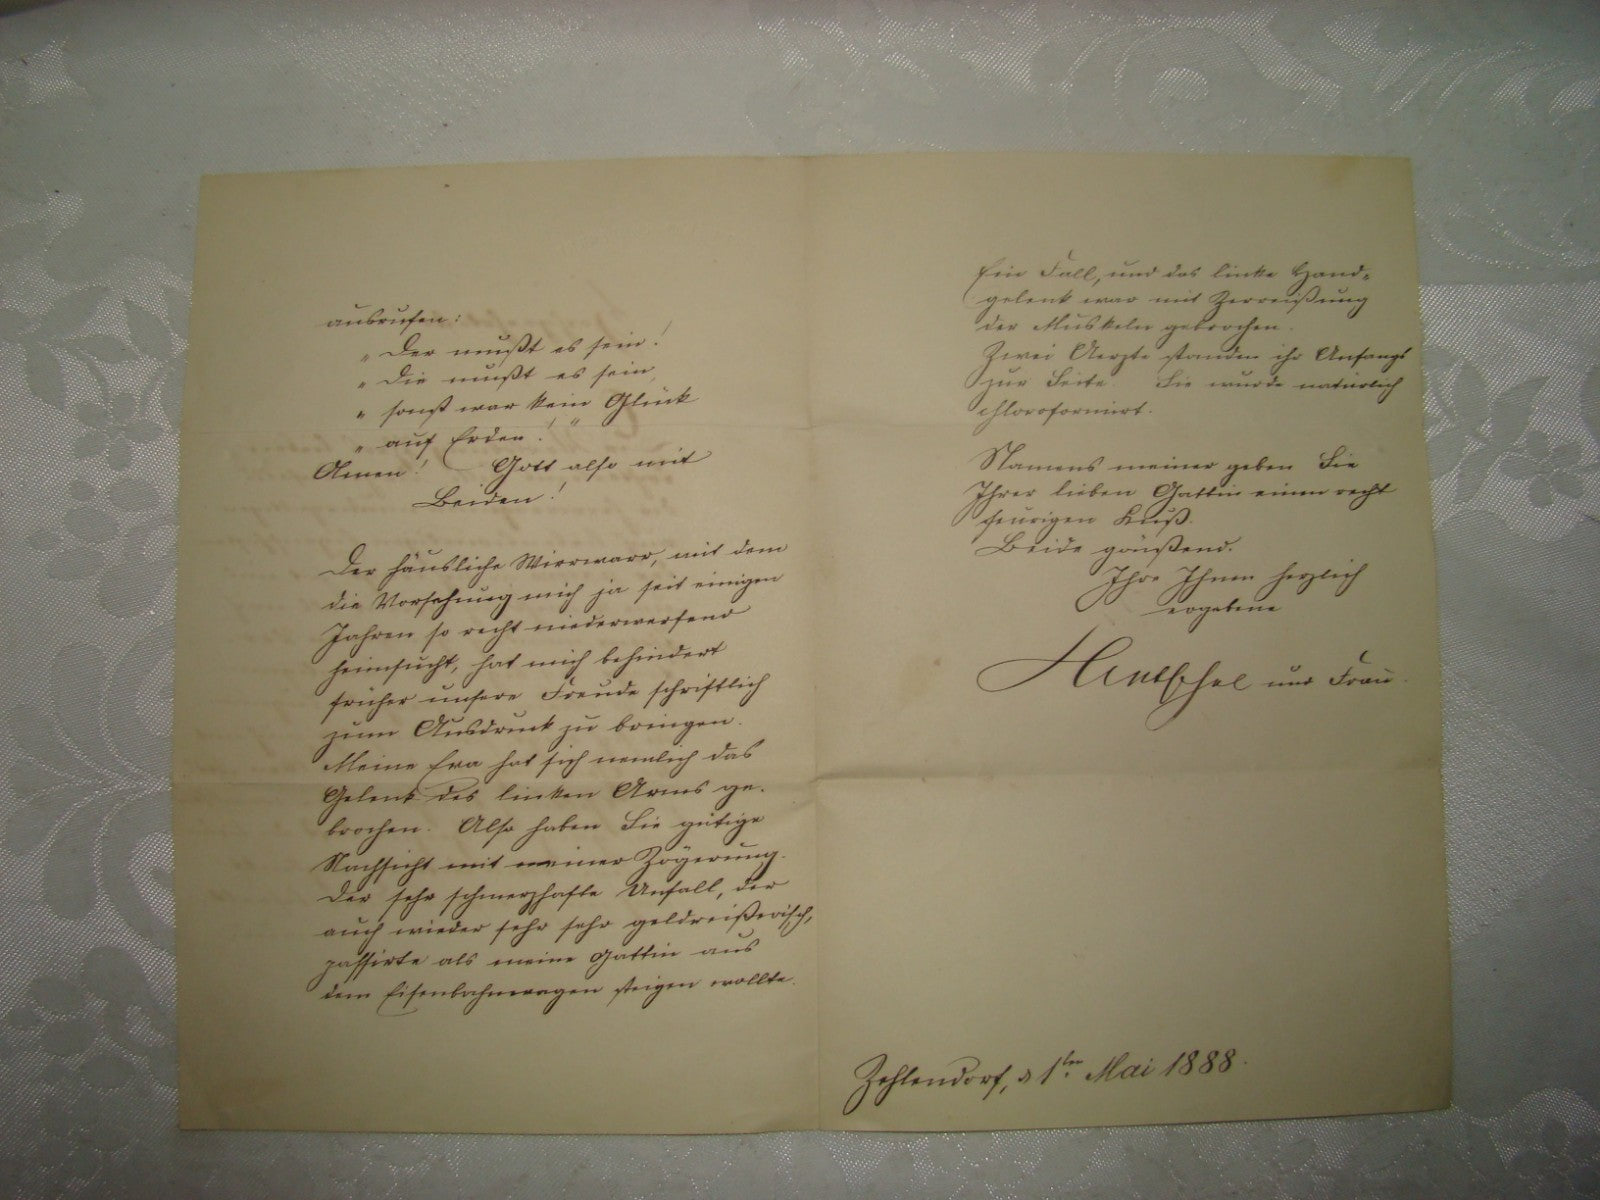 ausrufen:
„Der mußt es sein!
„Die mußt es sein,
„sonst war kein Glück
„auf Erden!"
Amen! Gott also mit
Beiden!
Der häusliche Wirrwarr, mit dem
die Vorsehung mich ja seit einigen
Jahren so recht niederwerfend
heimsucht, hat mich behindert
früher unsere Freude schriftlich
zum Ausdruck zu bringen.
Meine Eva hat sich nemlich das
Gelenk des linken Arms ge-
brochen. Also haben Sie gütige
Nachsicht mit meiner Zögerung.
Der sehr schmerzhafte Unfall, der
auch wieder sehr sehr geldreißerisch,
passirte als meine Gattin aus
dem Eisenbahnwagen steigen wollte.
Ein Fall, und das linke Hand-
gelenk war mit Zerreißung
der Muskeln gebrochen.
Zwei Aerzte standen ihr Anfangs
zur Seite. Sie wurde natürlich
chloroformirt.
Namens meiner geben Sie
Ihrer lieben Gattin einen recht
feurigen Kuß.
Beide grüßend.
Ihre Ihnen herzlich
ergebene
Hentschel und Frau.
Zehlendorf, d 1ten Mai 1888.